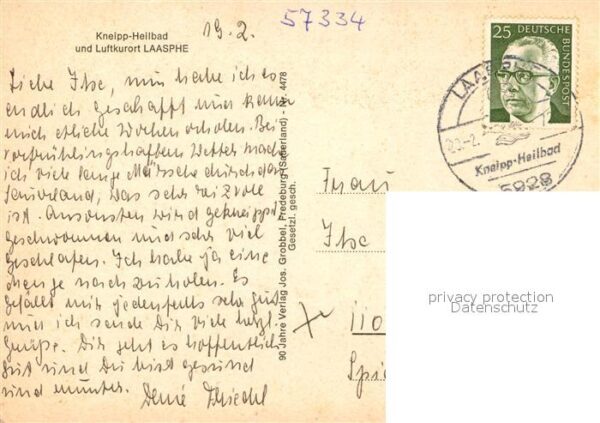 Kneipp-Heilbad
und Luftkurort LAASPHE
19.2.
57334
Liebe Ilse, nun habe ich es
endlich geschafft nun kann
mich etliche Wochen erholen. Bei
vorfrühlingshaftem Wetter mache
ich viele lange Märsche durch das
Sauerland, was sehr reizvoll
ist. Ansonsten wird gekneippt
geschwommen und sehr viel
geschlafen. Ich habe ja eine
Menge nach zu holen. Es
gefällt mir jedenfalls sehr gut
nun ich sende Dir viele herzl.
Grüße. Dir geht es hoffentlich
gut und Du bist gesund
und munter.
Deine
90 Jahre Verlag Jos. Grobbel, Fredeburg (Sauerland) - Nr. 4478
Gesetzl. gesch.
25 DEUTSCHE BUNDESPOST
LAASPHE
Kneipp-Heilbad
5928
Frau
Ilse
110
privacy protection
Datenschutz